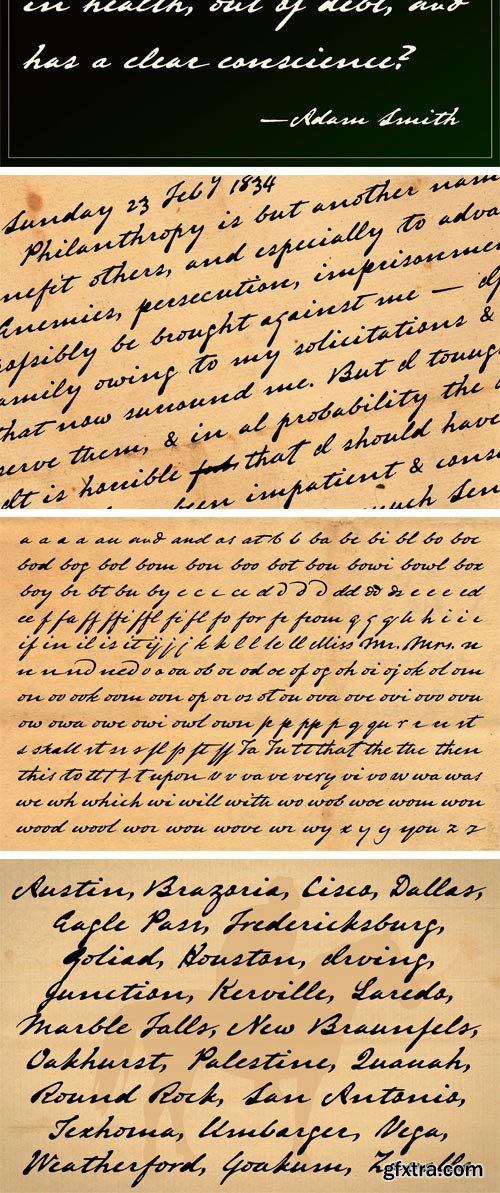 in health, out of debt, and
has a clear conscience?
—Adam Smith
Sunday 23 Feby 1834
Philanthropy is but another nam
nefit others, and especially to adva
Enemies, persecution, imprisonme
possibly be brought against me —
amily owing to my solicitations &
that now surround me. But I
serve them, & in al probability the
It is horrible that I should have
been impatient & cons
much
a a a a au and and as at b b ba be bi bl bo boc
bod bog bol bom bon boo bot bou bowi bowl box
boy br bt bu by c c c cd d d d dd dd e e e ed
ee f fa ff ffi ffl fi fl fo for fr from g g g h h i i i
if in il is it ij j j k k l l le ll Miss Mr. Mrs. n
n n nd ned o a oa ob oc od oe of og oh oi oj ok ol om
on oo ook oom oon op or os ot ou ova ove ovi ovo ovu
ow owa owe owi owl own p p pp p q qu r r u rt
s shall st sr s fl p ft ff Ta Tu tt that the the then
this to tt t t t upon v v va ve very vi vo w wa was
we wh which wi will with wo wob woe wom won
wood wool wor wou wove wr wy x y y you z z
Austin, Brazoria, Cisco, Dallas,
Eagle Pass, Fredericksburg,
Goliad, Houston, Irving,
Junction, Kerville, Laredo,
Marble Falls, New Braunfels,
Oakhurst, Palestine, Quanah,
Round Rock, San Antonio,
Texhoma, Umbarger, Vega,
Weatherford, Yoakum,
gfxtra.com